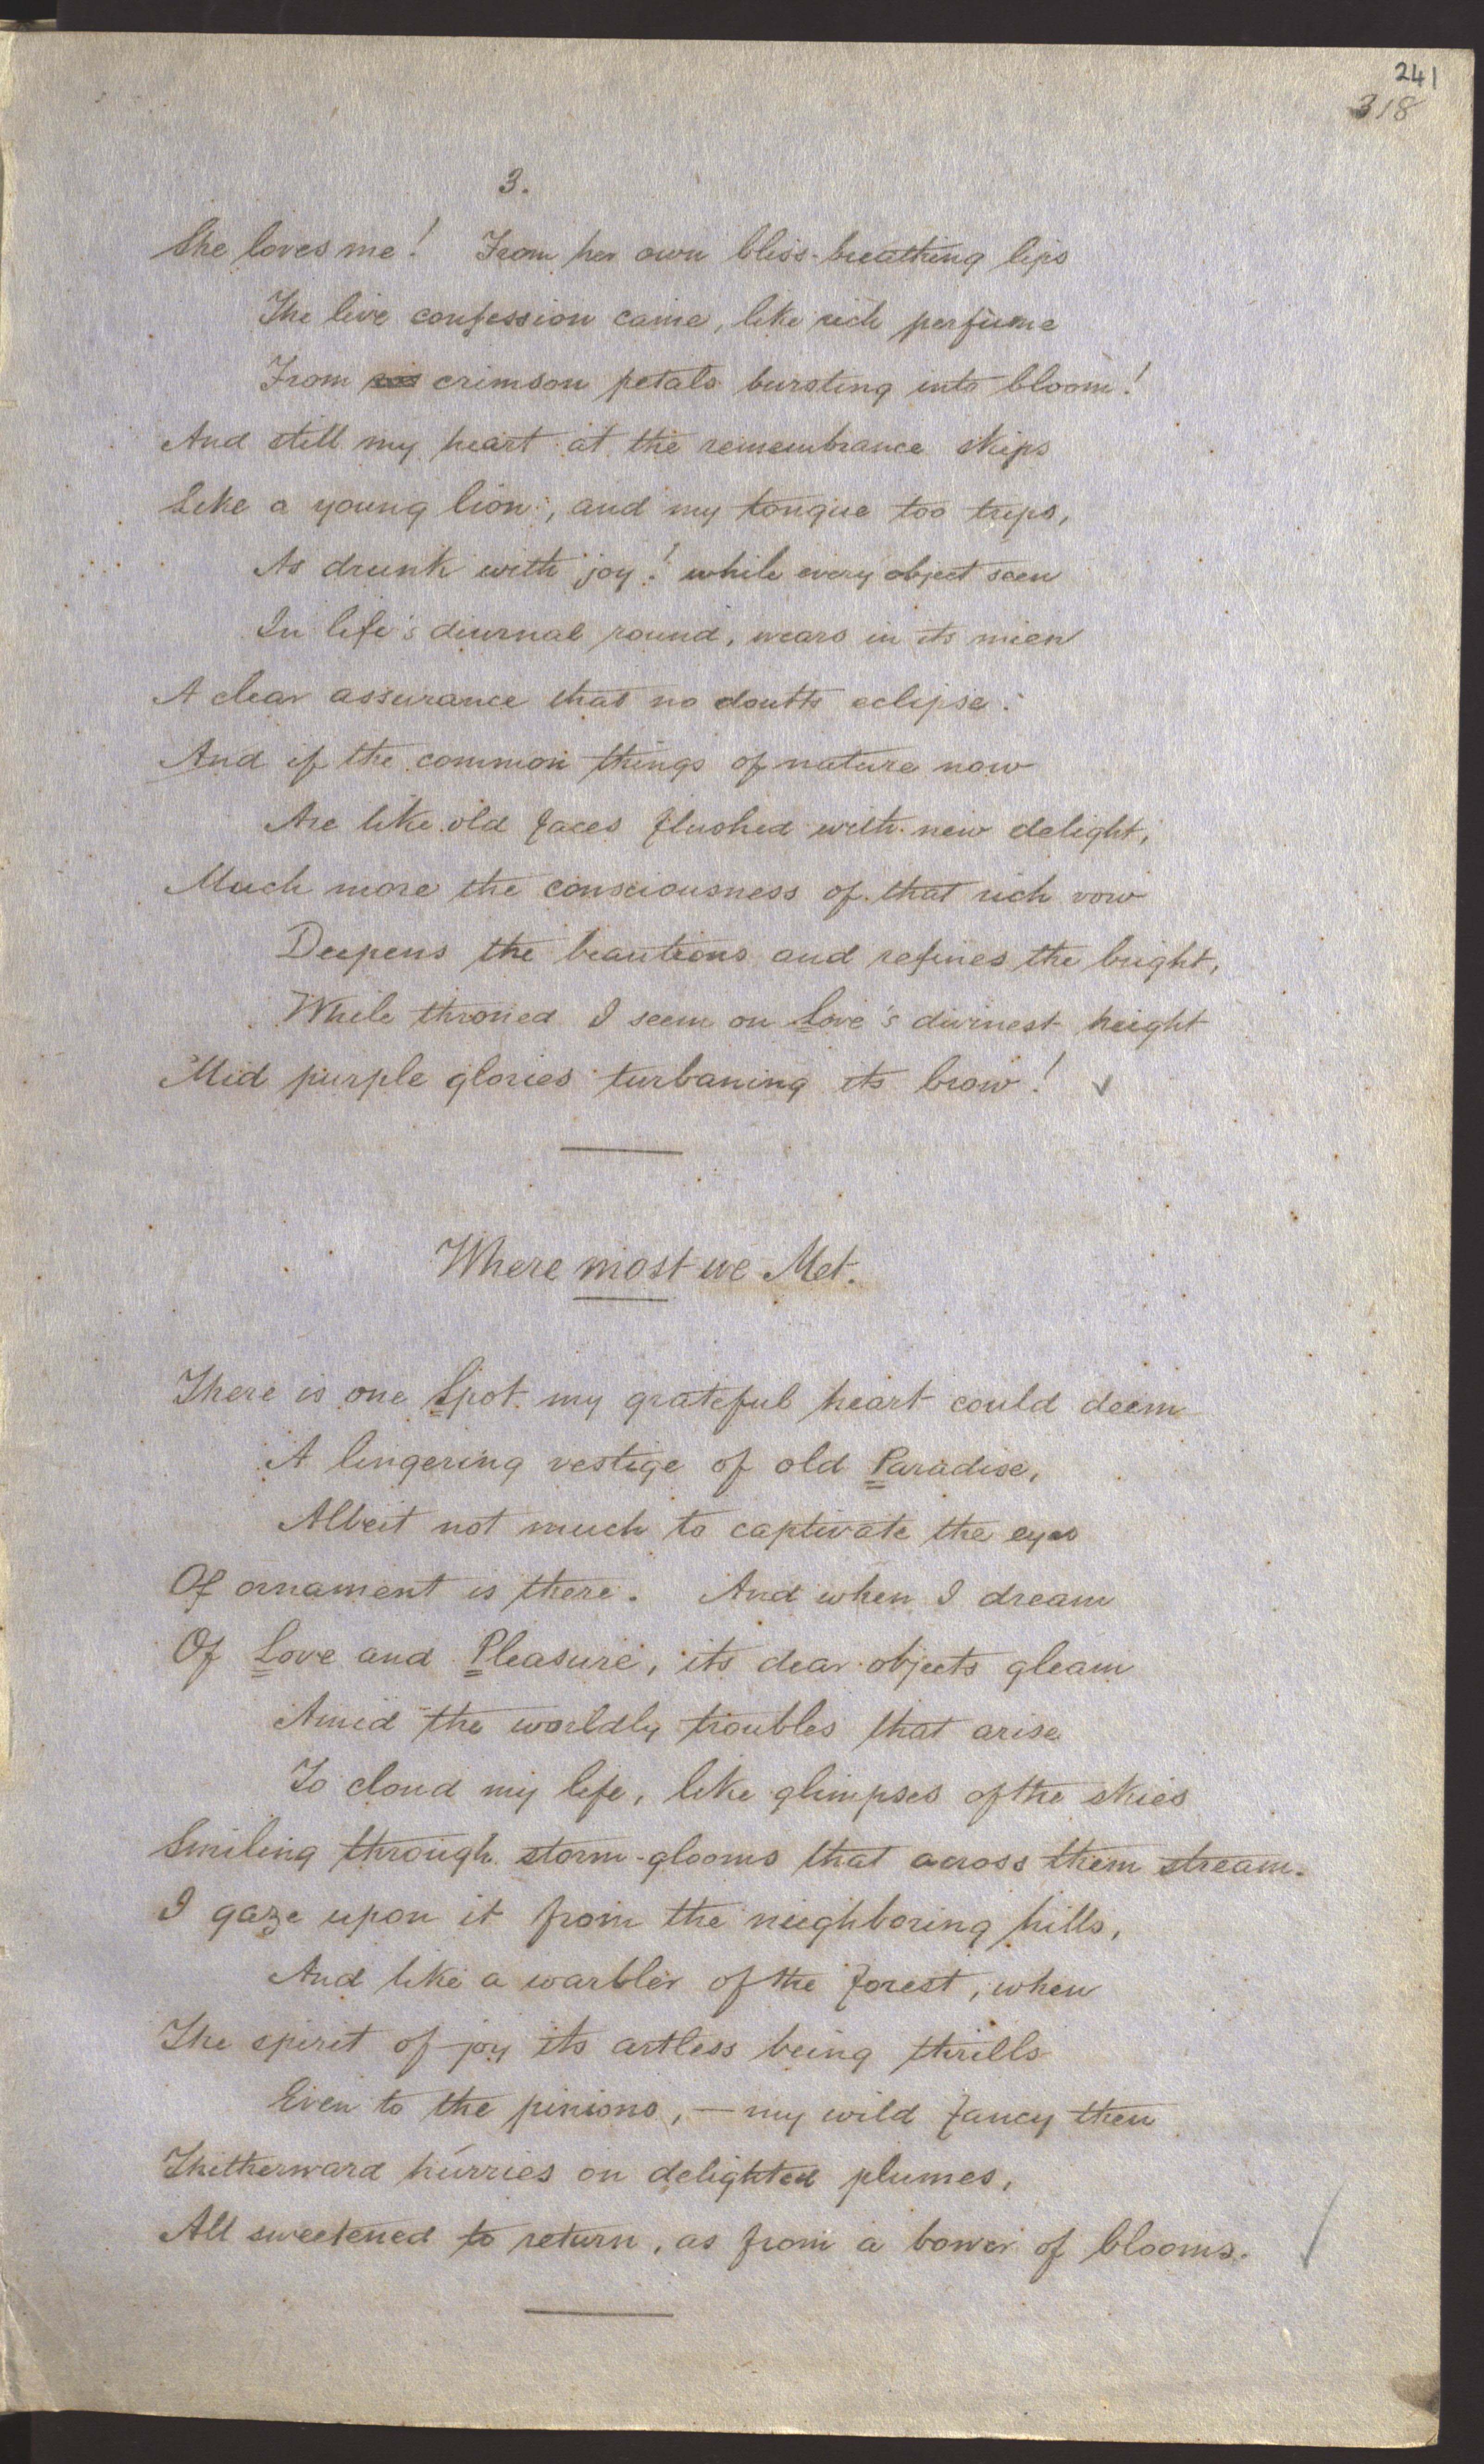 241
318
3.
She loves me! From her own bliss-breathing lips
The live confession came, like rich perfume
From crimson petals bursting into bloom!
And still my heart at the remembrance skips
Like a young lion, and my tongue too trips,
As drunk with joy! while every object seen
In life's diurnal round, wears in its mien
A clear assurance that no doubts eclipse.
And if the common things of nature now
Are like old faces flushed with new delight,
Much more the consciousness of that rich vow
Deepens the beauteous and refines the bright,
While throned I seem on Love's divinest height
Mid purple glories turbaning its brow!
Where most we Met.
There is one Spot my grateful heart could deem
A lingering vestige of old Paradise,
Albeit not much to captivate the eyes
Of ornament is there. And when I dream
Of Love and Pleasure, its dear objects gleam
Amid the worldly troubles that arise
To cloud my life, like glimpses of the skies
Smiling through storm-glooms that across them stream.
I gaze upon it from the neighboring hills,
And like a warbler of the forest, when
The spirit of joy its artless being thrills
Even to the pinions, — my wild fancy then
Thitherward hurries on delighted plumes,
All sweetened to return, as from a bower of blooms.